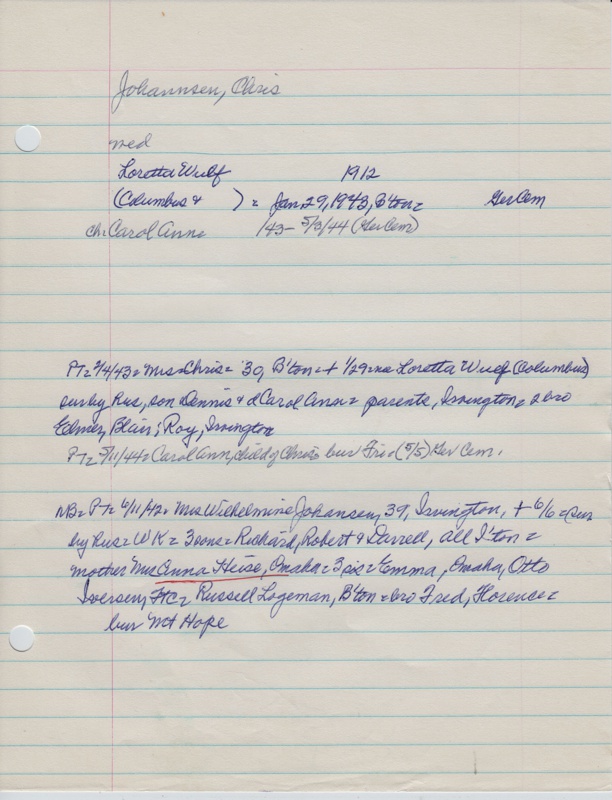 Johannsen, Chris
med
Loretta Wulf 1912
(Columbus & ) = Jan 29, 1943, B'ton = Ger Cem
ch: Carol Ann = /43 - 5/3/44 (Ger Cem)
PT = 2/4/43 = Mrs Chris = 30, B'ton = + 1/29 = na Loretta Wulf (Columbus)
sur by hus, son Dennis & d Carol Ann = parents, Irvington = 2 bro
Elmer, Blair; Roy, Irvington
PT = 5/11/44 = Carol Ann, child of Chris = bur Fri (5/5) Ger Cem.
NB = PT = 6/11/42 = Mrs Wilhelmine Johansen, 39, Irvington, + 6/6 = sur
by hus = WK = 3 sons = Richard, Robert & Darrell, all I'ton =
mother Mrs Anna Heise, Omaha = 3 sis = Emma, Omaha, Otto
Iversen, FtC = Russell Logeman, B'ton = bro Fred, Florence =
bur Mt Hope